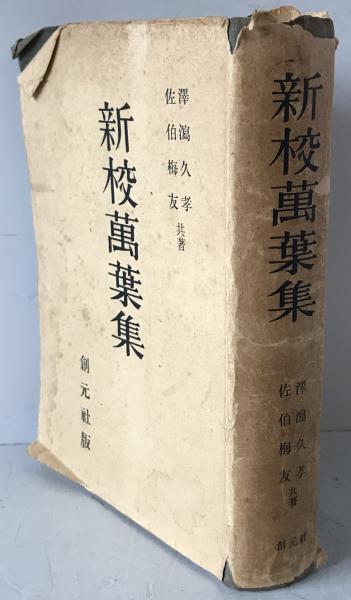 澤瀉久孝
佐伯梅友
共著
新校萬葉集
創元社版
新校萬葉集
澤瀉久孝
佐伯梅友
共著
創元社